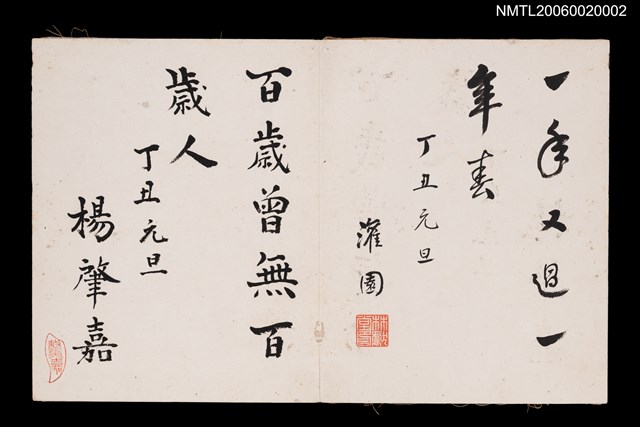 NMTL20060020002
一年又過一
年春
丁丑元旦
灌園
百歲曾無百
歲人
丁丑元旦
楊肇嘉